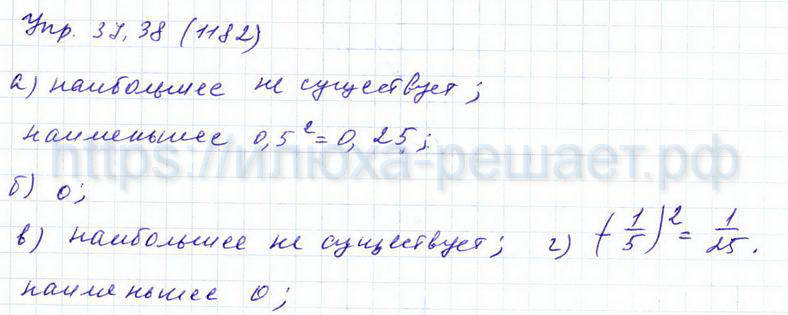 Упр. 37, 38 (1182)
а) наибольшее не существует;
наименьшее 0,5² = 0, 25;
https://илюха-решает.рф
б) 0;
в) наибольшее не существует; г) (-1/5)² = 1/25.
наименьшее 0;